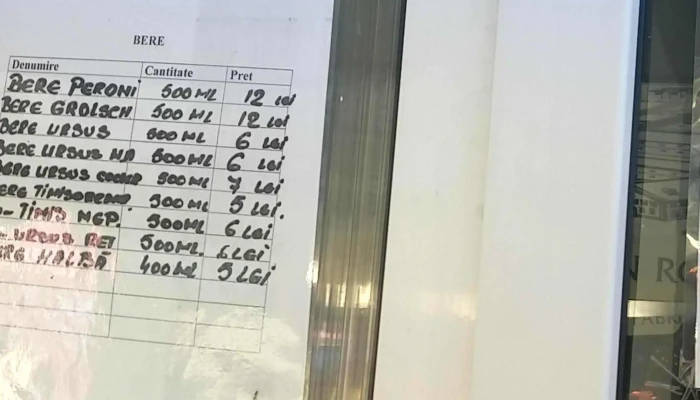 BERE
Denumire Cantitate Pret
BERE PERONI 500 ML 12 LEI
BERE GROLSCH 500 ML 12 LEI
BERE URSUS 500 ML 6 LEI
BERE URSUS NA 500 ML 6 LEI
BERE URSUS COOLER 500 ML 7 LEI
BERE TIMISOREANA 500 ML 5 LEI.
TIMIS NGP. 500 ML 6 LEI
URSUS RET 500 ML. 6 LEI
BERE HALBĂ 400 ML 5 LEI